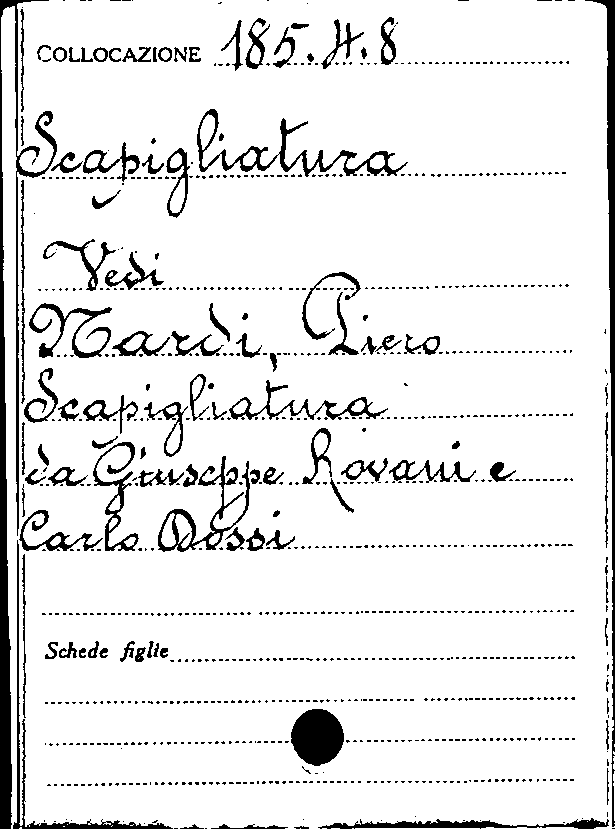 COLLOCAZIONE 185.H.8
Scapigliatura
Vedi
Nardi, Piero
Scapigliatura
da Giuseppe Rovani e
Carlo Dossi
Schede figlie